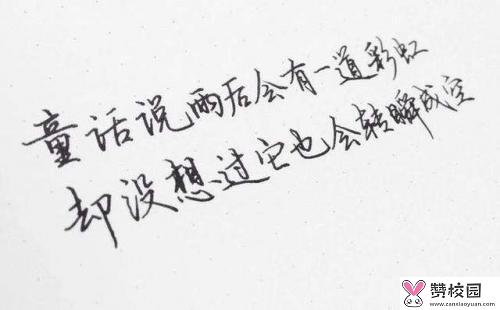 童话说雨后会有一道彩虹
却没想过它也会转瞬成空
赞校园
www.zanxiaoyuan.com